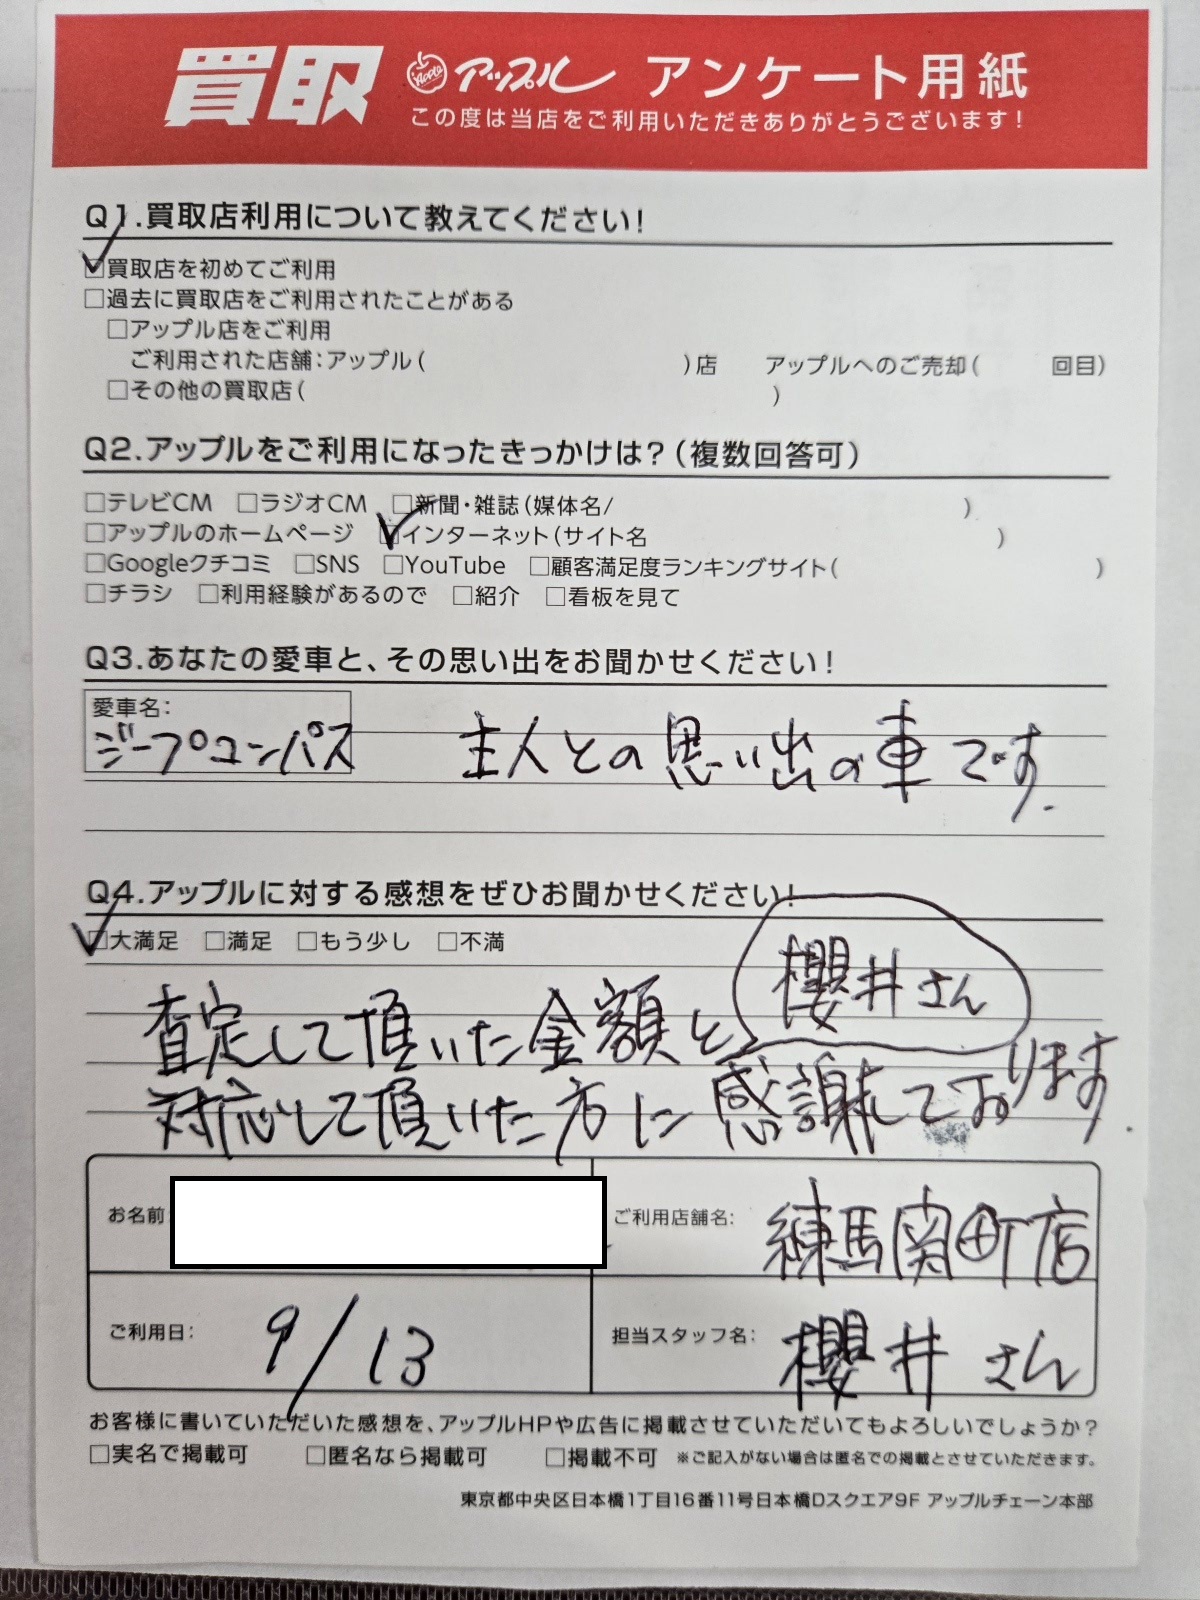 買取 Apple アップル アンケート用紙
この度は当店をご利用いただきありがとうございます!
Q1.買取店利用について教えてください!
☑買取店を初めてご利用
□過去に買取店をご利用されたことがある
□アップル店をご利用
ご利用された店舗:アップル( )店 アップルへのご売却( 回目)
□その他の買取店( )
Q2.アップルをご利用になったきっかけは?(複数回答可)
□テレビCM □ラジオCM □新聞・雑誌(媒体名/ )
□アップルのホームページ ☑インターネット(サイト名 )
□Googleクチコミ □SNS □YouTube □顧客満足度ランキングサイト( )
□チラシ □利用経験があるので □紹介 □看板を見て
Q3.あなたの愛車と、その思い出をお聞かせください!
愛車名:
ジープコンパス 主人との思い出の車です.
Q4.アップルに対する感想をぜひお聞かせください!
☑大満足 □満足 □もう少し □不満
櫻井さん
査定して頂いた金額と
対応して頂いた方に感謝しております.
お名前 ご利用店舗名: 練馬関町店
ご利用日: 9/13 担当スタッフ名: 櫻井さん
お客様に書いていただいた感想を、アップルHPや広告に掲載させていただいてもよろしいでしょうか?
□実名で掲載可 □匿名なら掲載可 □掲載不可 ※ご記入がない場合は匿名での掲載とさせていただきます。
東京都中央区日本橋1丁目16番11号日本橋Dスクエア9F アップルチェーン本部